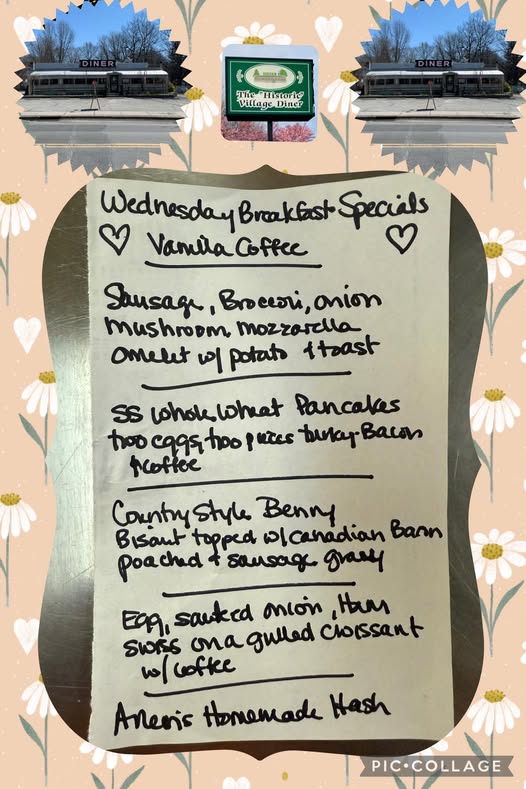 DINER
DINER
The "Historic"
Village Diner
Wednesday Breakfast Specials
Vanilla Coffee
Sausage, Broccori, onion
mushroom, mozzarella
omelet w/ potato + toast
SS whole wheat Pancakes
two eggs, two pieces turkey-Bacon
+ coffee
Country Style Benny
Bisciut topped w/ canadian Bacon
poached + sausage gravy
Egg, sauteed onion, Ham
swiss on a grilled croissant
w/ coffee
Homemade Hash
PIC•COLLAGE